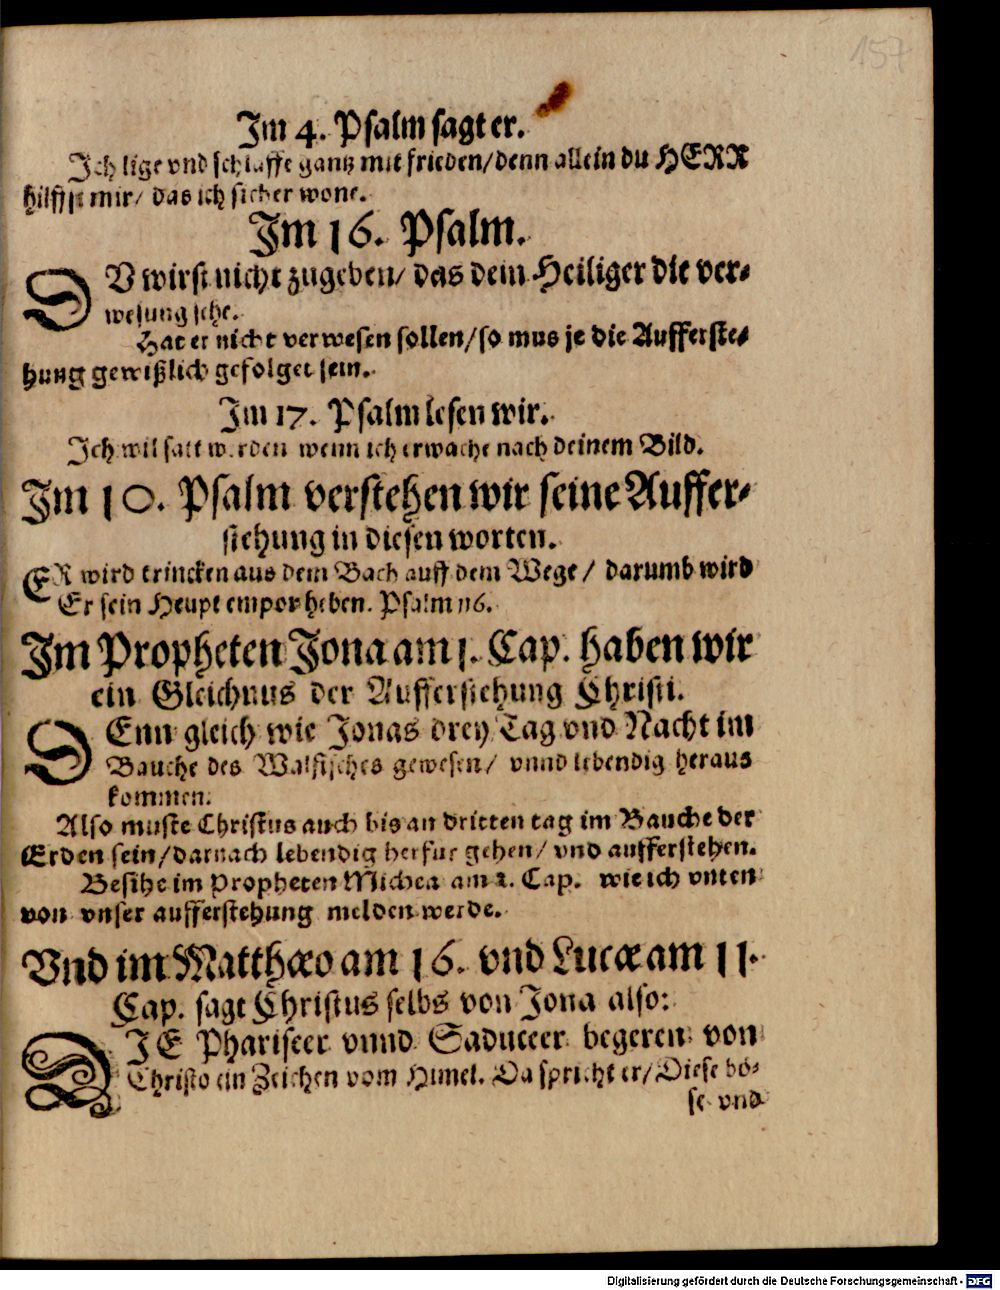 157
Im 4. Psalm sagt er.
Ich lige vnd schlaffe gantz mit frieden/ denn allein du HERR
hilffst mir/ das ich sicher wone.
Im 16. Psalm.
DV wirst nicht zugeben/ das dein Heiliger die ver-
wesung sehe.
Hat er nicht verwesen sollen/ so mus je die Aufferste-
hung gewißlich gefolget sein.
Im 17. Psalm lesen wir.
Ich wil satt werden wenn ich erwache nach deinem Bild.
Im 10. Psalm verstehen wir seine Auffer-
stehung in diesen worten.
ER wird trincken aus dem Bach auff dem Wege/ darumb wird
Er sein Heupt empor heben. Psalm 116.
Im Propheten Jona am 1. Cap. haben wir
ein Gleichnus der Aufferstehung Christi.
DEnn gleich wie Jonas drey Tag vnd Nacht im
Bauche des Walfisches gewesen/ vnnd lebendig heraus
kommen:
Also muste Christus auch bis an dritten tag im Bauche der
Erden sein/ darnach lebendig herfur gehen/ vnd aufferstehen.
Besihe im Propheten Michea am 2. Cap. wie ich vnten
von vnser aufferstehung melden werde.
Vnd im Matthæo am 16. vnd Lucæ am 11.
Cap. sagt Christus selbs von Jona also:
DIE Phariseer vnnd Saduceer begeren von
Christo ein Zeichen vom Himel. Da spricht er/ Diese bö-
se vnd
Digitalisierung gefördert durch die Deutsche Forschungsgemeinschaft - DFG